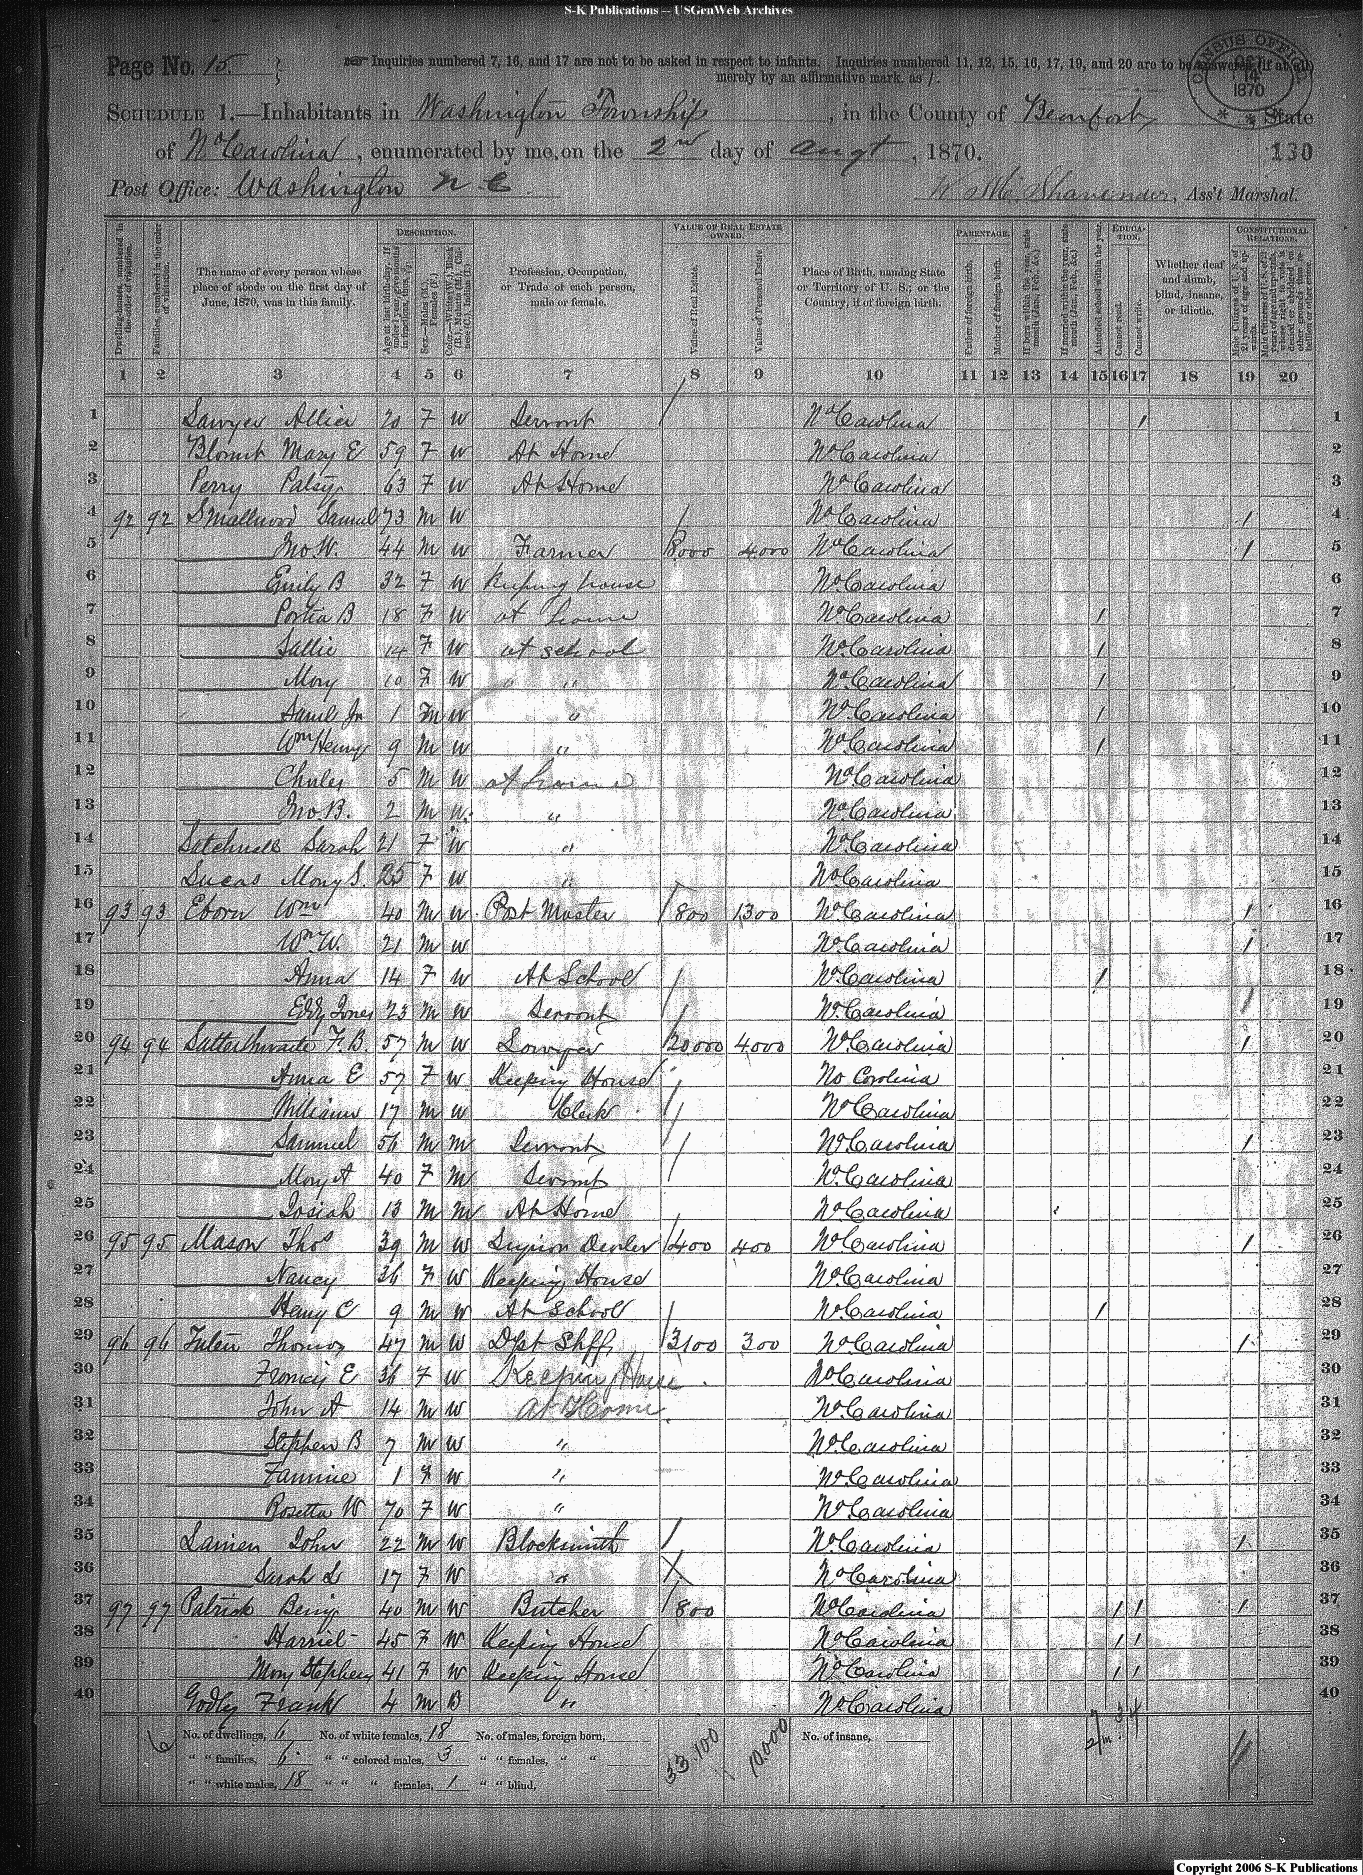 S-K Publications -- USGenWeb Archives
Page No. 15.
Inquiries numbered 7, 16, and 17 are not to be asked in respect to infants. Inquiries numbered 11, 12, 15, 16, 17, 19, and 20 are to be answered (if at all) merely by an affirmative mark, as /.
CENSUS OFFICE 14 1870
SCHEDULE 1.—Inhabitants in Washington Township, in the County of Beaufort, State
of No Carolina, enumerated by me, on the 2nd day of Augt, 1870. 130
Post Office: Washington N C Ass't Marshal.
DESCRIPTION. VALUE OF REAL ESTATE OWNED. PARENTAGE. EDUCATION. CONSTITUTIONAL RELATIONS.
Dwelling-houses, numbered in the order of visitation.
Families, numbered in the order of visitation.
The name of every person whose place of abode on the first day of June, 1870, was in this family.
Profession, Occupation, or Trade of each person, male or female.
Value of Real Estate.
Value of Personal Estate
Place of Birth, naming State or Territory of U. S.; or the Country, if of foreign birth.
Father of foreign birth.
Mother of foreign birth.
Attended school within the year.
Cannot read.
Cannot write.
Whether deaf and dumb, blind, insane, or idiotic.
1 2 3 4 5 6 7 8 9 10 11 12 13 14 15 16 17 18 19 20
1 Sawyer Allice 20 F W Servant No Carolina / 1
2 Blount Mary E 59 F W At Home No Carolina 2
3 Perry Patsy 63 F W At Home No Carolina 3
4 92 92 Smallwood Samuel 73 M W No Carolina / 4
5 Jno W. 44 M W Farmer 8000 4000 No Carolina / 5
6 Emily B 32 F W Keeping house No Carolina 6
7 Portia B 18 F W at home No Carolina / 7
8 Sallie 14 F W at school No Carolina / 8
9 Mary 10 F W " " No Carolina / 9
10 Saml Jr 1 M W " No Carolina / 10
11 Wm Henry 9 M W " No Carolina / 11
12 Charles 5 M W at home No Carolina 12
13 Jno. B. 2 M W " No Carolina 13
14 Satchwell Sarah 21 F W " No Carolina 14
15 Lucas Mary S. 25 F W " No Carolina 15
16 93 93 Eborn Wm 40 M W Post Master 800 1300 No Carolina / 16
17 Wm W. 21 M W No Carolina / 17
18 Anna 14 F W At School No Carolina / 18
19 Jones 23 M W Servant No Carolina / 19
20 94 94 Satterthwaite F. B. 57 M W Lawyer 20000 4000 No Carolina / 20
21 Anna E 57 F W Keeping House No Carolina 21
22 William 17 M W Clerk No Carolina 22
23 Samuel 56 M M Servant No Carolina / 23
24 Mary A 40 F M Servant No Carolina 24
25 Josiah 13 M M At Home No Carolina 25
26 95 95 Mason Thos 39 M W Liquor Dealer 1400 400 No Carolina / 26
27 Nancy 36 F W Keeping House No Carolina 27
28 Henry C 9 M W At School No Carolina / 28
29 96 96 Thomas 47 M W Dpt Shff 3100 300 No Carolina / 29
30 Francis E 36 F W Keeping House No Carolina 30
31 John A 14 M W at Home No Carolina 31
32 Stephen B 7 M W " No Carolina 32
33 Fannie 1 F W " No Carolina 33
34 Rosetta W 70 F W " No Carolina 34
35 John 22 M W Blacksmith No Carolina / 35
36 Sarah L 17 F W " No Carolina 36
37 97 97 Patrick Benj 40 M W Butcher 800 No Carolina / / / 37
38 Harriet 45 F W Keeping House No Carolina / / 38
39 Mary Stephens 41 F W Keeping House No Carolina / / 39
40 Godly Frank 4 M B " No Carolina 40
6 No. of dwellings, 6 No. of white females, 18 No. of males, foreign born, 33,100 10,000 No. of insane,
" " families, 6 " " colored males, 3 " " females, " "
" " white males, 18 " " " females, 1 " " blind,
Copyright 2006 S-K Publications